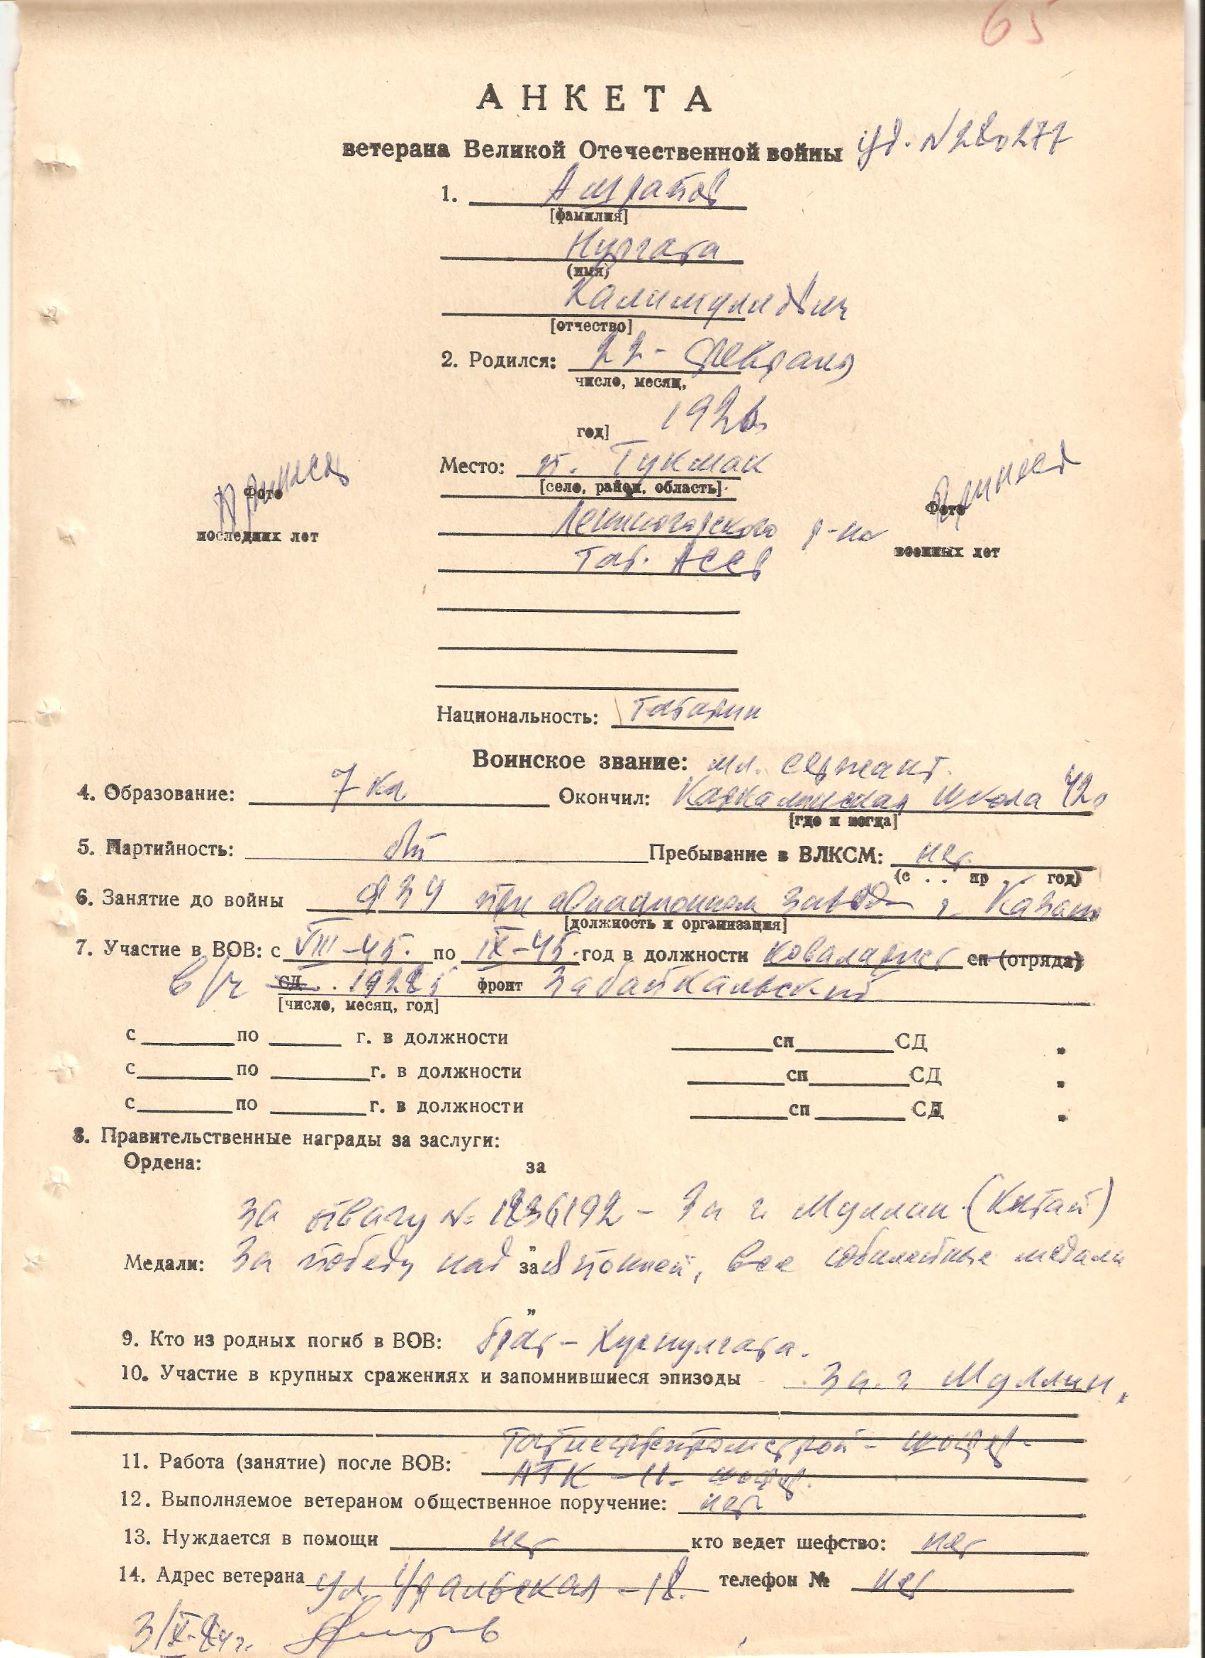 65
АНКЕТА
ветерана Великой Отечественной войны уд. № 280277
1. Ашрапов
[фамилия]
Нургата
(имя)
Калимуллович
[отчество]
2. Родился: 22 - февраля
число, месяц,
1926
год]
Место: п. Тукмак
[село, район, область]
Лениногорского р-на
Тат. АССР
принес
Фото
последних лет
принес
Фото
военных лет
Национальность: татарин
Воинское звание: мл. сержант.
4. Образование: 7 кл Окончил: школа 42г
[где и когда]
5. Партийность: б/п Пребывание в ВЛКСМ: нет.
(с . . пр . . год)
6. Занятие до войны ФЗУ при авиационном заводе г. Казань
[должность и организация]
7. Участие в ВОВ: с VIII-45. по IX-45. год в должности сп (отряда)
в/ч сд. фронт Забайкальский
[число, месяц, год]
с по г. в должности сп СД "
с по г. в должности сп СД "
с по г. в должности сп СД "
8. Правительственные награды за заслуги:
Ордена: за
За отвагу № 1236192 - За г. Муллин (Китай)
"
Медали: За победу над за Японией, все юбилейные медали
"
9. Кто из родных погиб в ВОВ: брат -
10. Участие в крупных сражениях и запомнившиеся эпизоды За г. Муллин.
Татнефтепромстрой - шофер -
11. Работа (занятие) после ВОВ: АТК - 11 - шофер.
12. Выполняемое ветераном общественное поручение: нет
13. Нуждается в помощи нет кто ведет шефство: нет
14. Адрес ветерана ул. Уральская - 18. телефон № нет
3/X-84г.